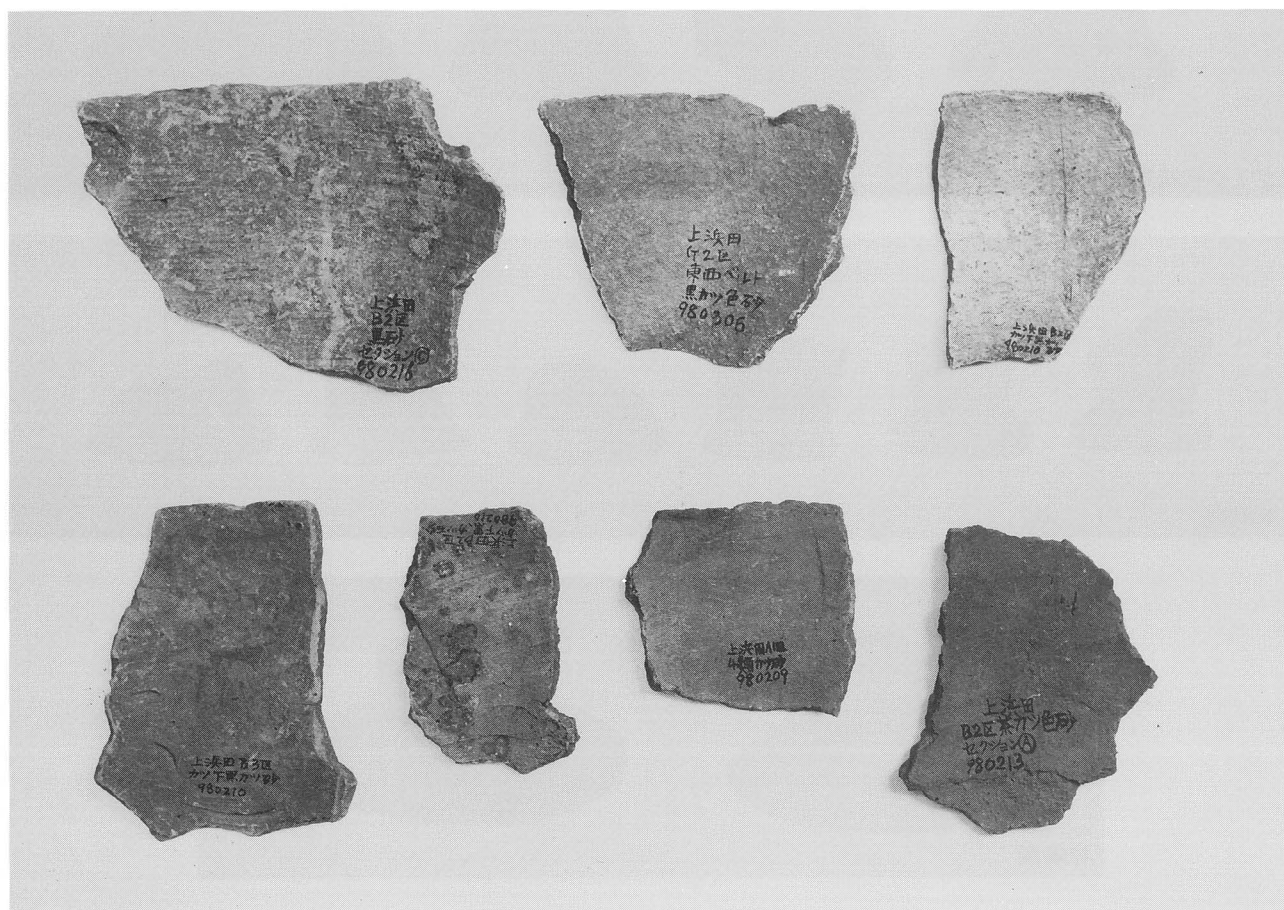 上浜田
B2区
黒砂
セクションⒷ
980218
上浜田
G2区
東西ベルト
黒カツ色砂
980306
上浜田B2区
カツ下
980210 砂
上浜田B3区
カツ下黒カツ砂
980210
上浜田B2区
カツ下黒カツ砂
980210
上浜田
980209
上浜田
B2区茶カツ色砂
セクションⒶ
980213